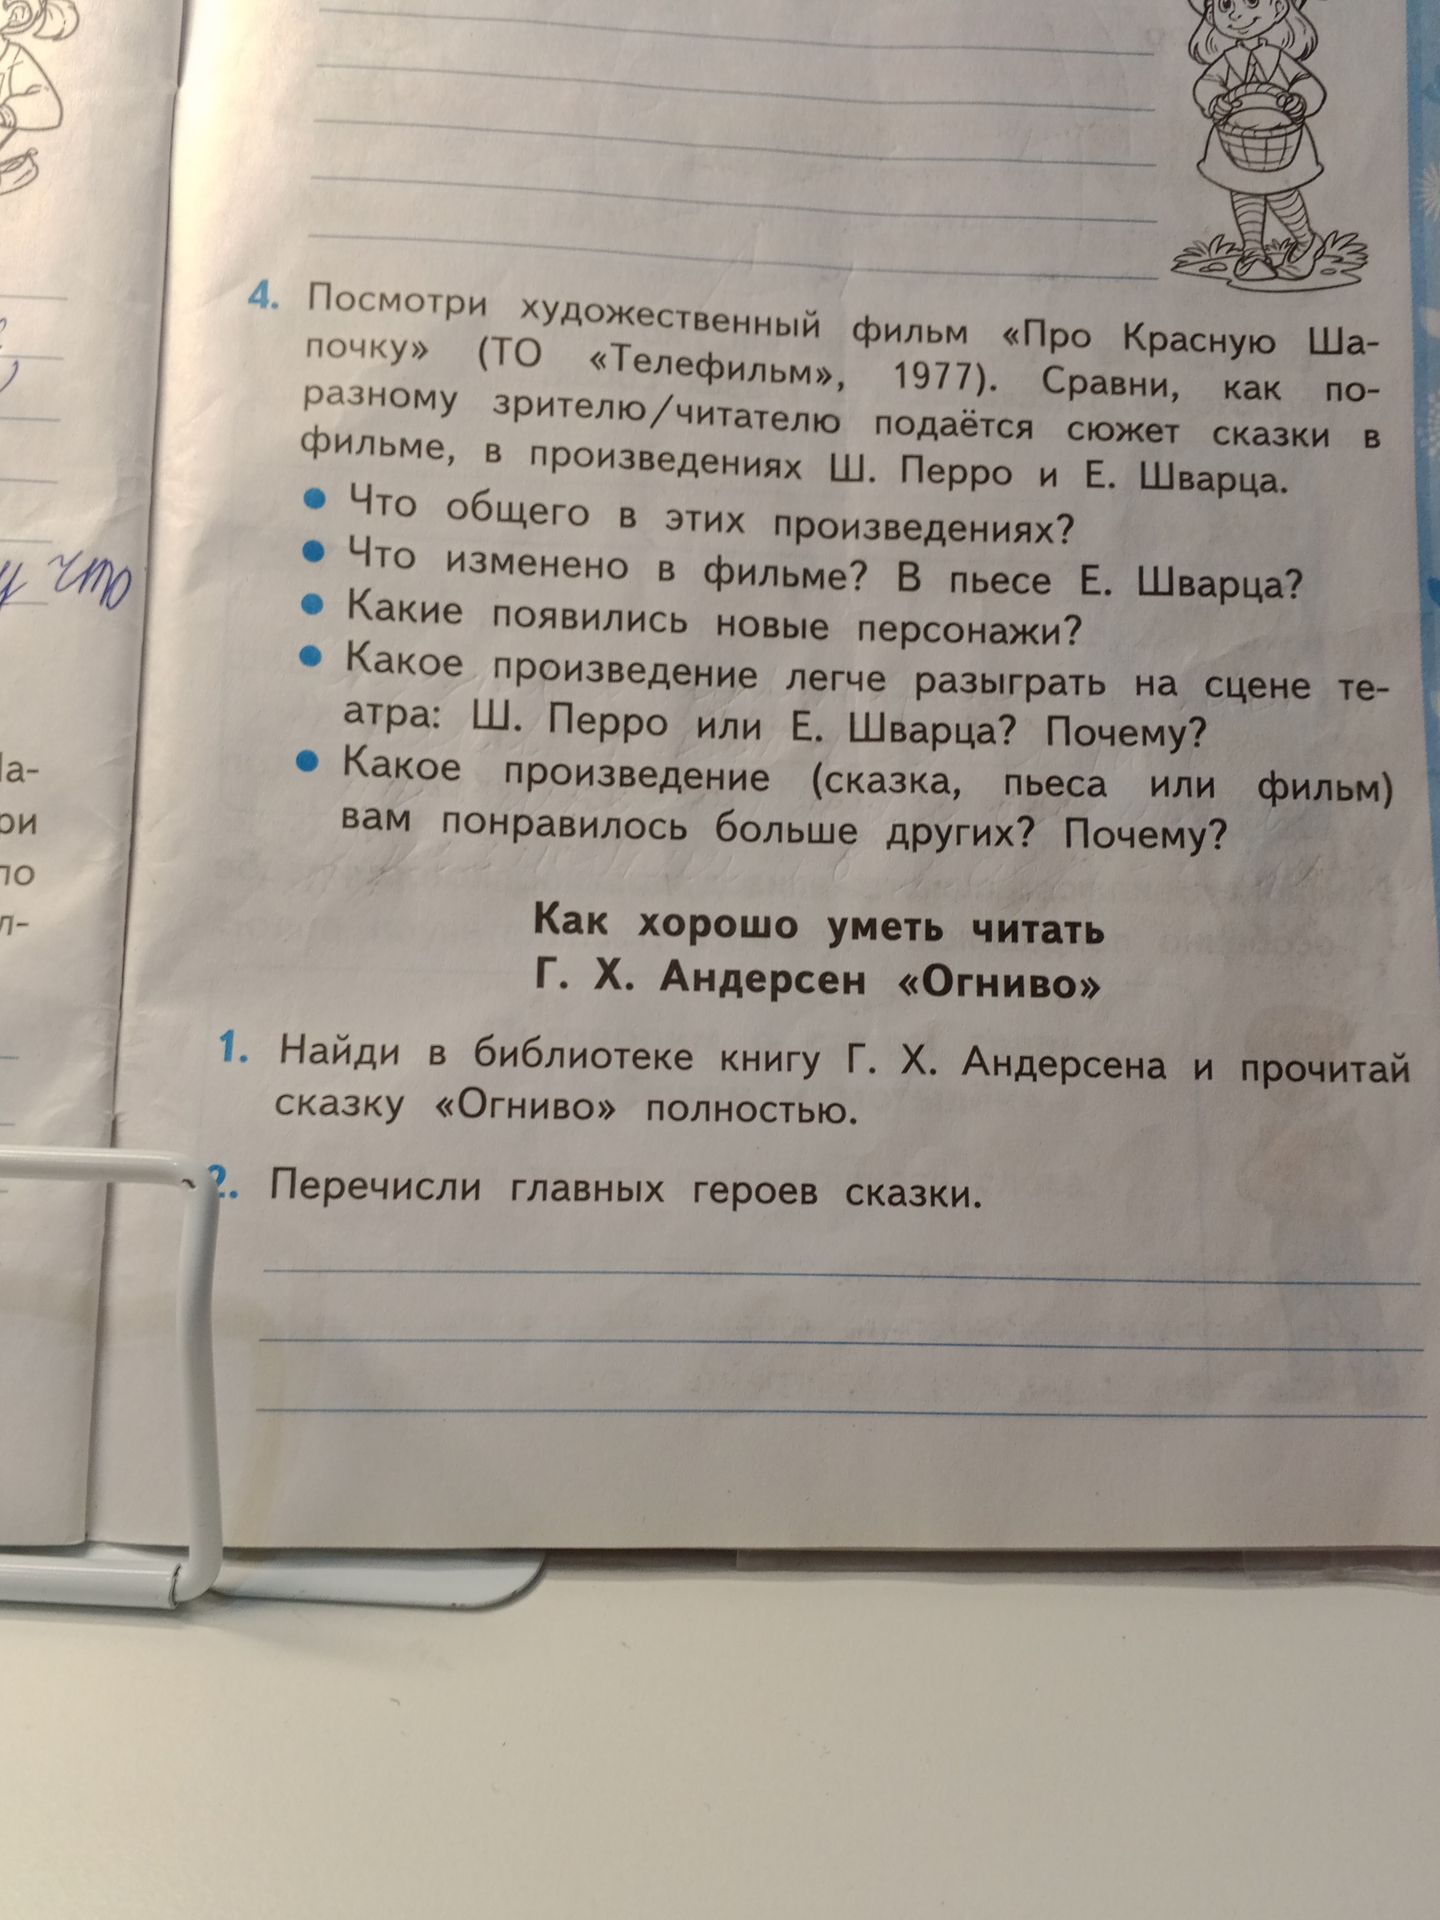 что
4. Посмотри художественный фильм «Про Красную Ша-
почку» (ТО «Телефильм», 1977). Сравни, как по-
разному зрителю/читателю подаётся сюжет сказки в
фильме, в произведениях Ш. Перро и Е. Шварца.
• Что общего в этих произведениях?
• Что изменено в фильме? В пьесе Е. Шварца?
• Какие появились новые персонажи?
• Какое произведение легче разыграть на сцене те-
атра: Ш. Перро или Е. Шварца? Почему?
• Какое произведение (сказка, пьеса или фильм)
вам понравилось больше других? Почему?
Как хорошо уметь читать
Г. Х. Андерсен «Огниво»
1. Найди в библиотеке книгу Г. Х. Андерсена и прочитай
сказку «Огниво» полностью.
2. Перечисли главных героев сказки.